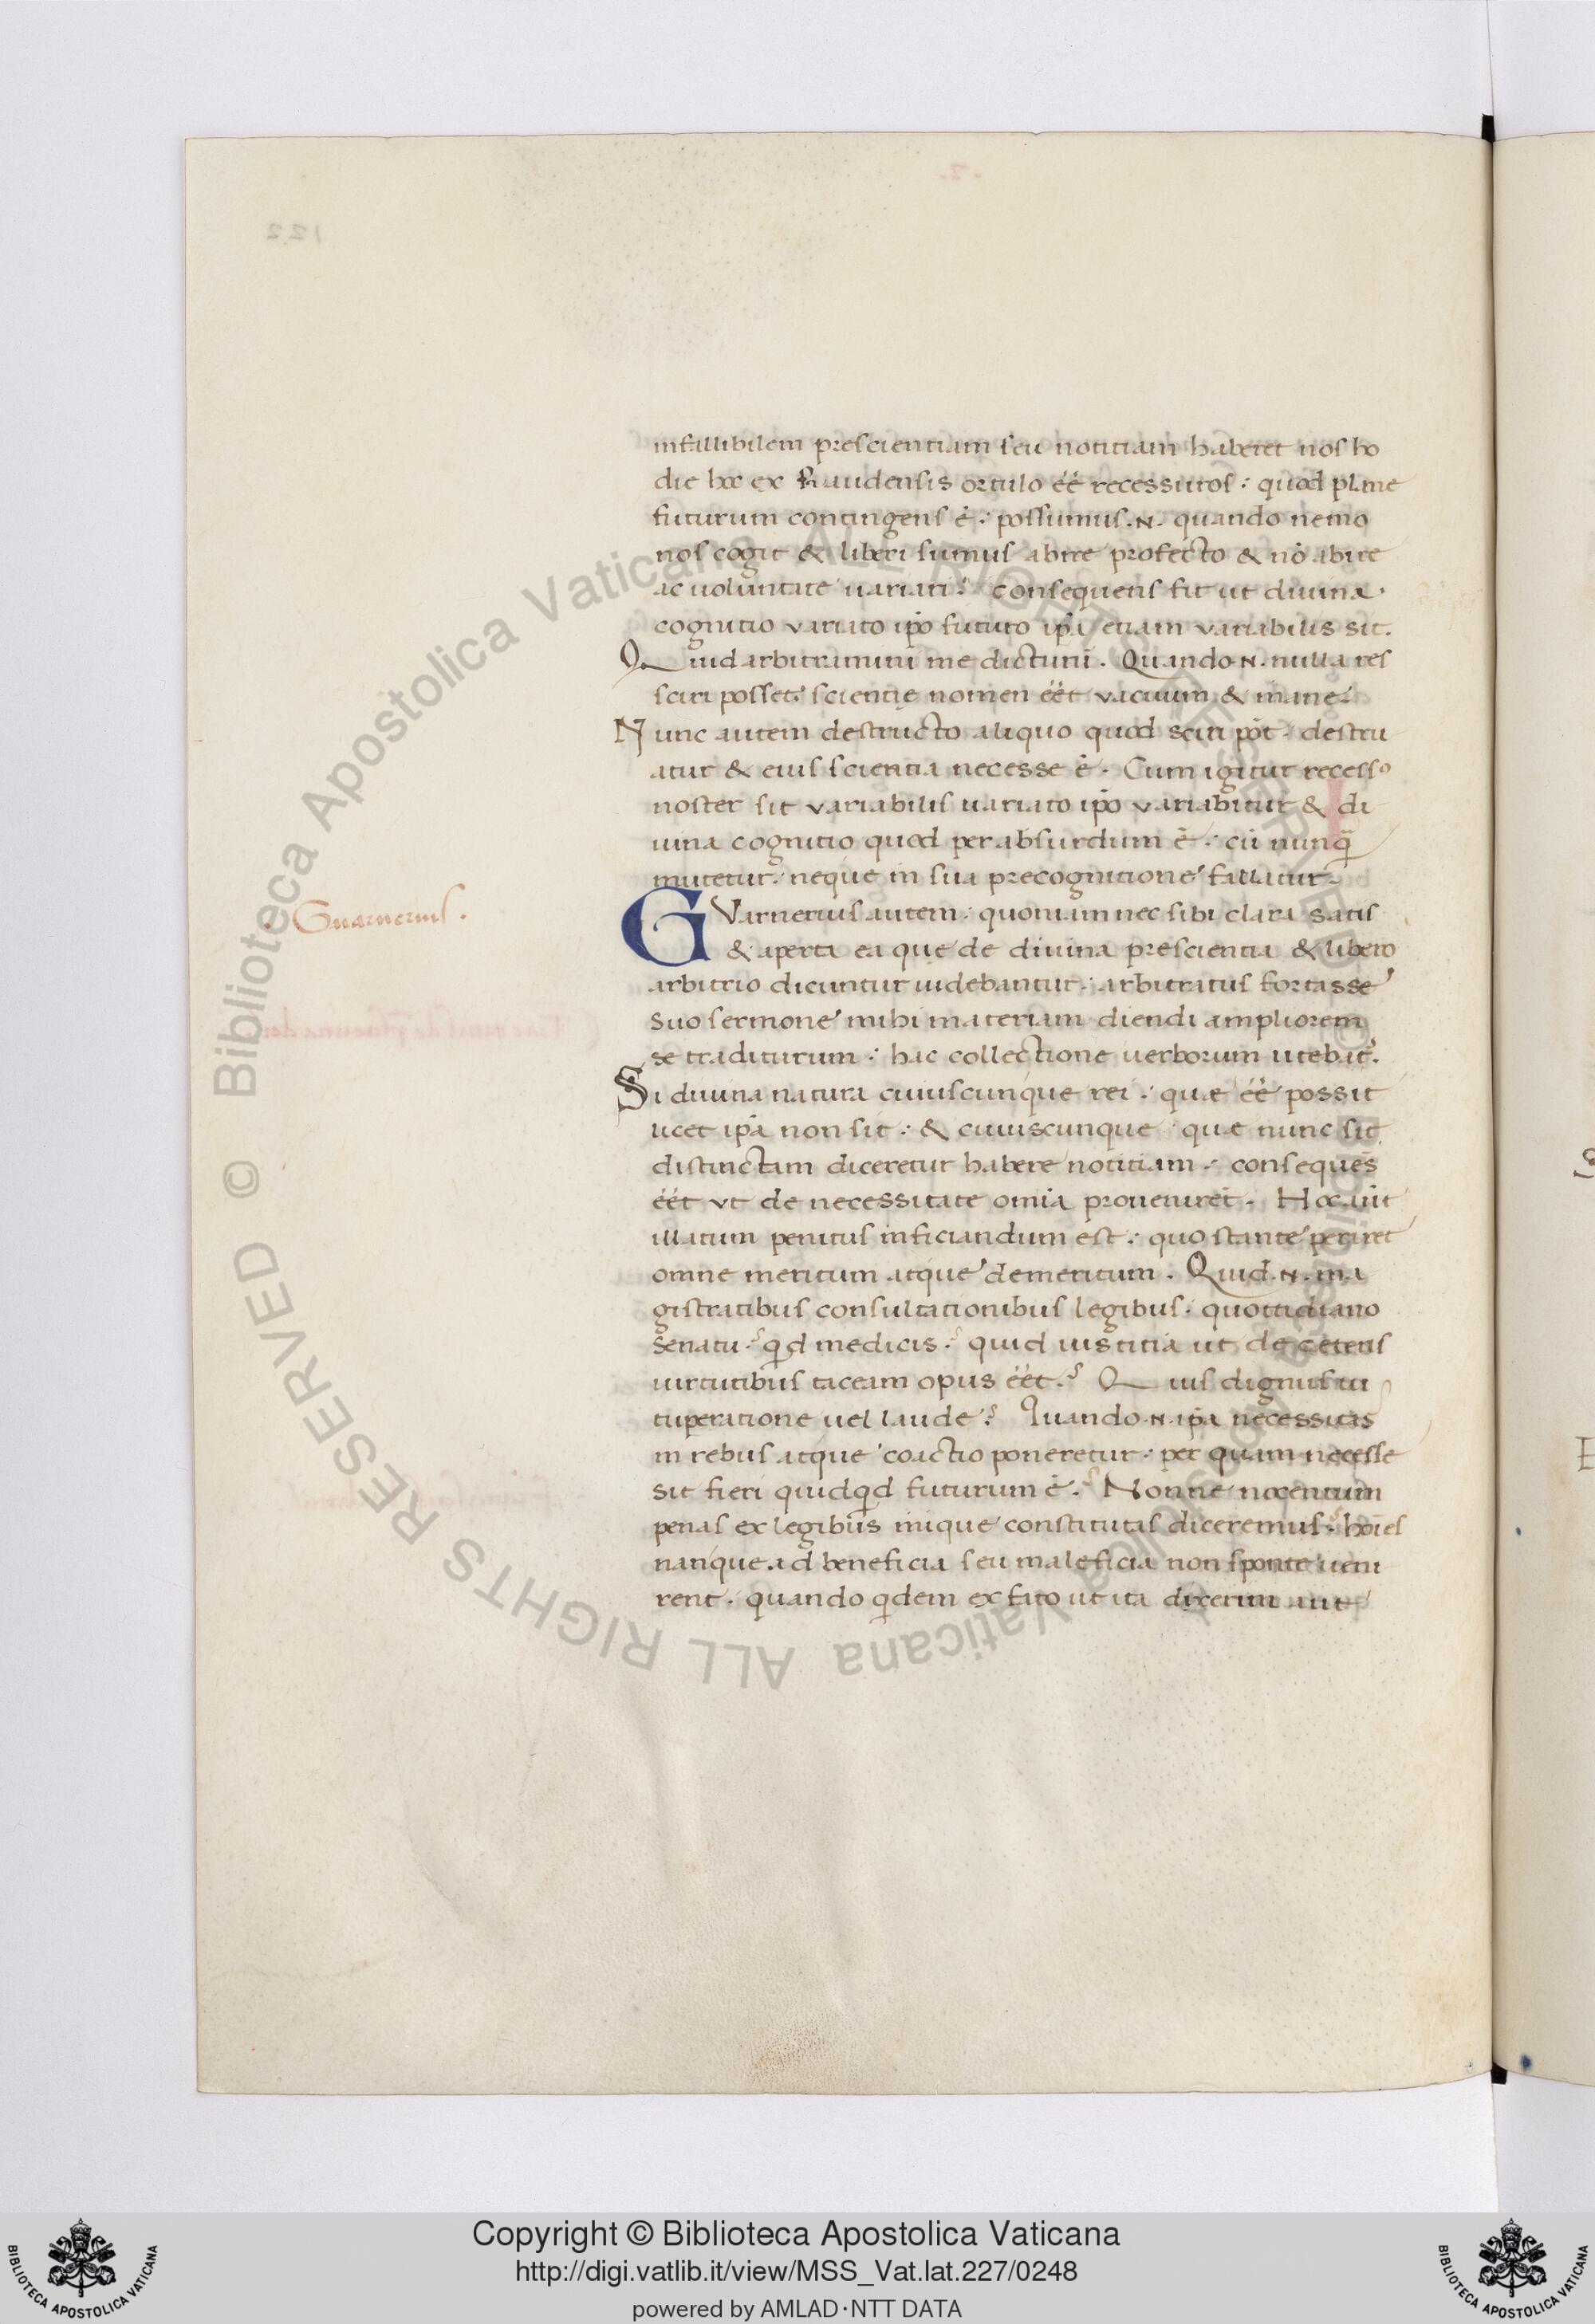 infallibilem prescientiam seu notitiam haberet nos ho
die hoc ex Fraudensis ortulo ēē recessuros : quod plane
futurum contingens ē : possumus .N. quando nemo
nos cogit & liberi sumus abire profecto & nō abire
ac uoluntate uariari : consequens fit ut diuina
cognitio variato ipō futuro ipā etiam variabilis sit.
Quid arbitramini me dicturū . Quando .N. nulla res
sciri posset : scientię nomen ēēt vacuum & inane .
Nunc autem destructo aliquo quod sciri pōt . destru
atur & eius scientia necesse ē . Cum igitur recessꝰ
noster sit variabilis uariato ipō variabitur & di
uina cognitio quod per absurdum ē : cū nunq̄
mutetur . neque in sua precognitione fallatur .
Guarnerius .
GVarnerius autem . quoniam nec sibi clara satis
& aperta ea quę de diuina prescientia & libero
arbitrio dicuntur uidebantur : arbitratus fortasse
suo sermone mihi materiam dicendi ampliorem
se traditurum : hac collectione uerborum utebat̄ .
Si diuina natura cuiuscunque rei : quæ ēē possit
licet ipā non sit : & cuiuscunque quæ nunc sit
distinctam diceretur habere notitiam : consequēs
ēēt vt de necessitate omīa prouenirēt . Hoc aūt
illatum penitus inficiandum est : quo stante periret
omne meritum atque demeritum . Quid .N. ma
gistratibus consultationibus legibus . quottidiano
senatu ? qd medicis ? quid iustitia ut de ceteris
uirtutibus taceam opus ēēt ? Quis dignus ui
tuperatione uel laude ? Quando .N. ipā necessitas
in rebus atque coactio poneretur : per quam necesse
sit fieri quidqd futurum ē ? Nonne nocentum
penas ex legibus inique constitutas diceremus ? hoīes
nanque ad beneficia seu maleficia non sponte ueni
rent . quando qdem ex fato ut ita dixerim aut
Copyright © Biblioteca Apostolica Vaticana
http://digi.vatlib.it/view/MSS_Vat.lat.227/0248
powered by AMLAD·NTT DATA
BIBLIOTECA APOSTOLICA VATICANA
BIBLIOTECA APOSTOLICA VATICANA
© Biblioteca Apostolica Vaticana ALL RIGHTS RESERVED © Biblioteca Apostolica Vaticana ALL RIGHTS RESERVED